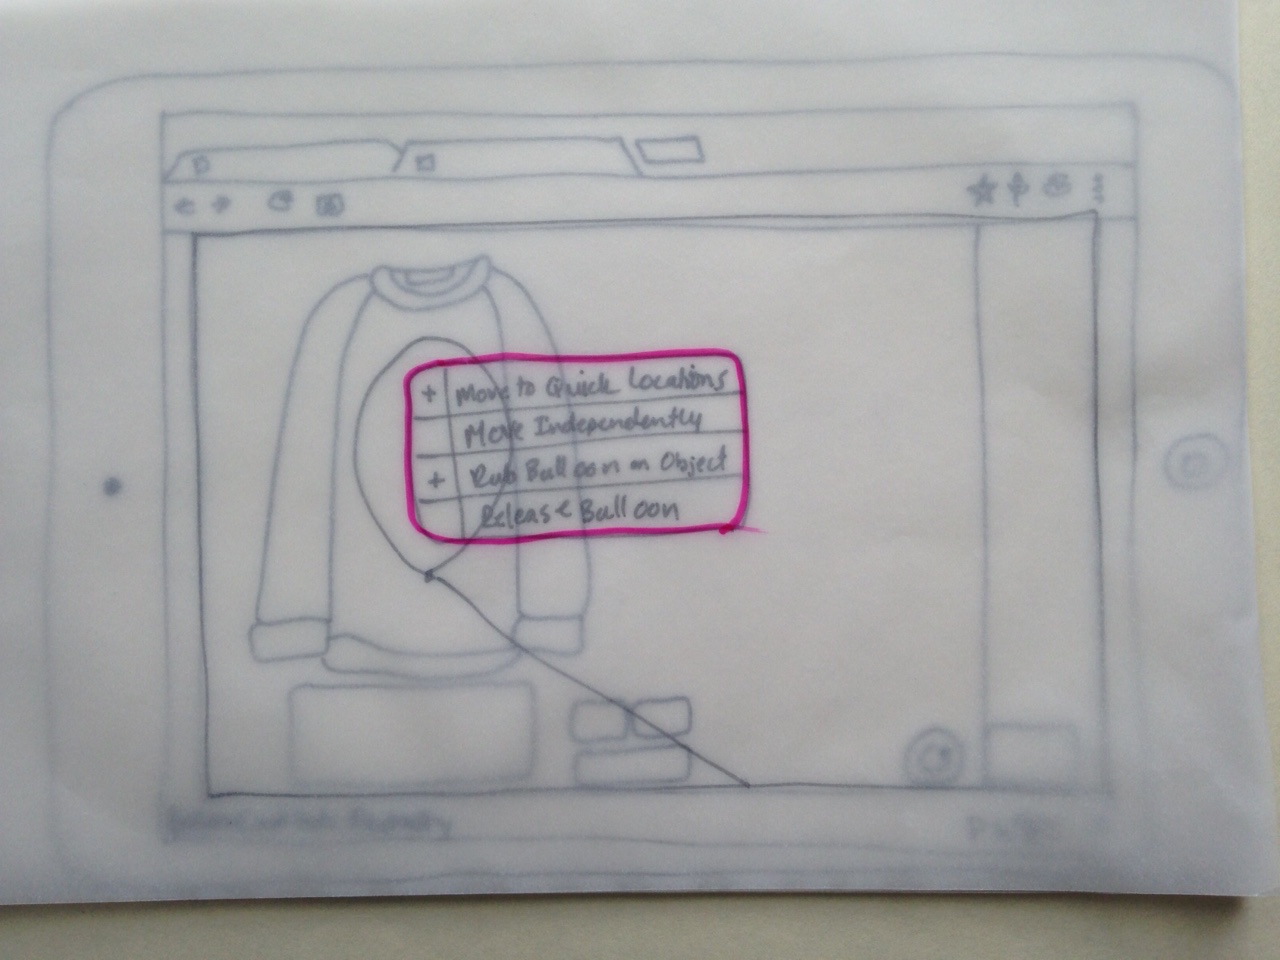 + Move to Quick Locations
Move Independently
+ Rub Balloon on Object
Release Balloon